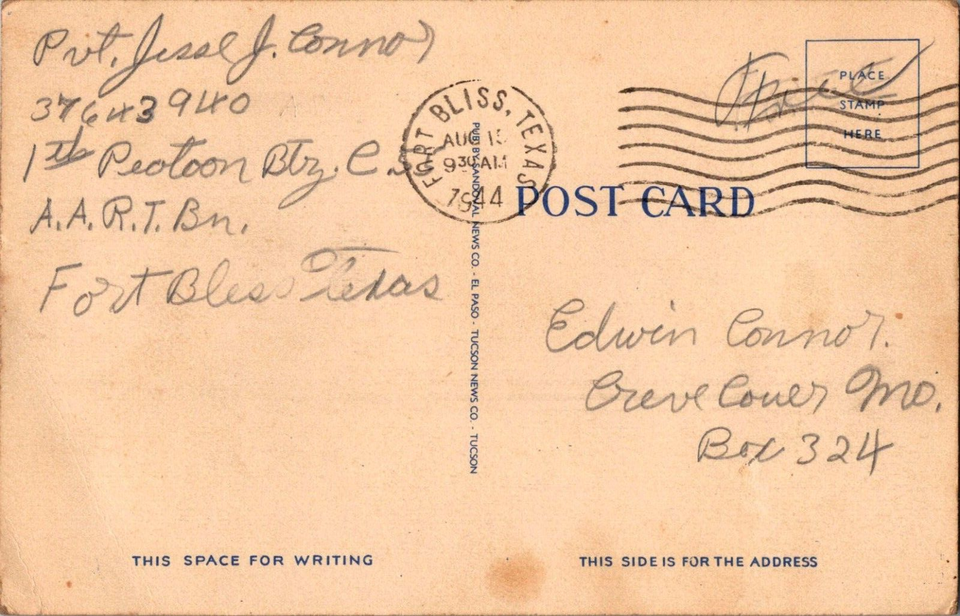 Pvt. Jesse J. Connor
37643940
1th Peotoon Btry. C
A.A.R.T. Bn.
Fort Bless Texas
FORT BLISS, TEXAS
AUG 15
9 30 AM
1944
Free
PLACE
STAMP
HERE
POST CARD
PUB. BY SANDAL NEWS CO. - EL PASO - TUCSON NEWS CO. - TUCSON
Edwin Connor.
Creve Couer Mo.
Box 324
THIS SPACE FOR WRITING
THIS SIDE IS FOR THE ADDRESS